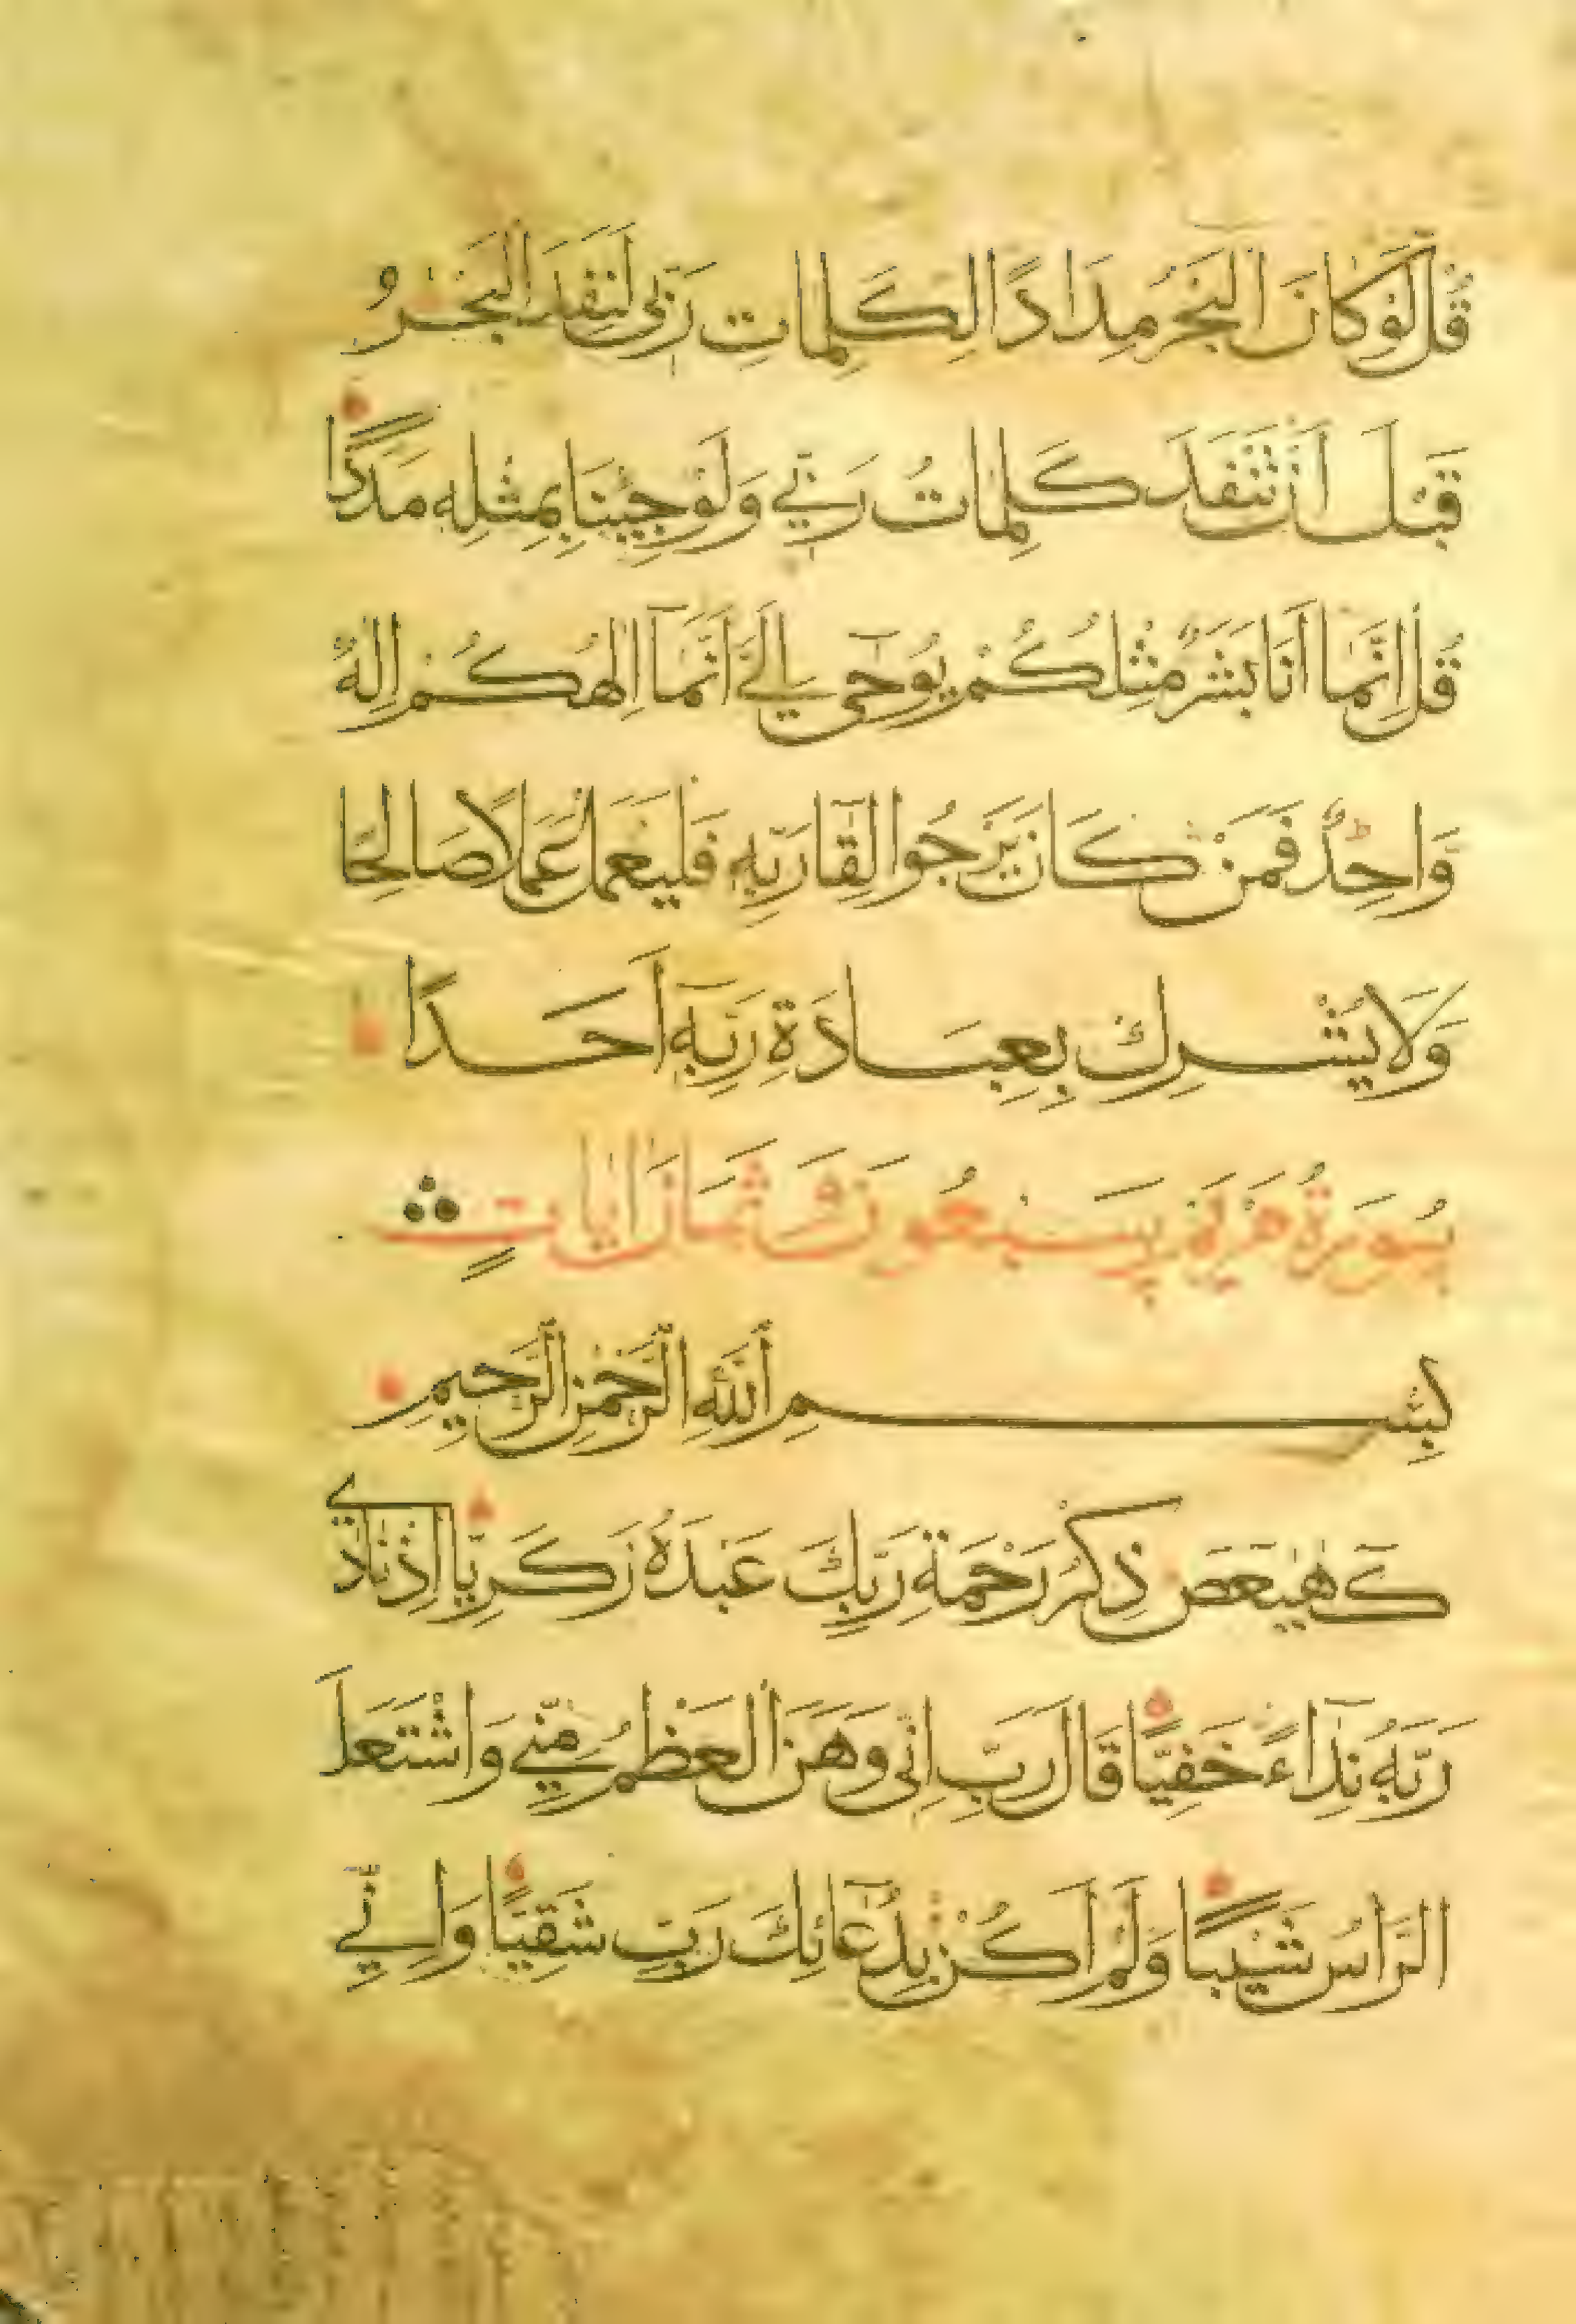 قُل لَّوْ كَانَ الْبَحْرُ مِدَادًا لِكَلِمَاتِ رَبِّي لَنَفِدَ الْبَحْرُ
قَبْلَ اَنْ تَنْفَدَ كَلِمَاتُ رَبِّي وَلَوْ جِيْنَا بِمِثْلِهِ مَدَدًا
قُلْ اِنَّمَا اَنَا بَشَرٌ مِثْلُكُمْ يُوحَى اِلَيَّ اَنَّمَا اِلٰهُكُمْ اِلٰهٌ
وَّاحِدٌ فَمَنْ كَانَ يَرْجُوا لِقَا رَبِّهِ فَلْيَعْمَلْ عَمَلًا صَالِحًا
وَلَا يُشْرِكْ بِعِبَادَةِ رَبِّهِ اَحَدًا
سُورَةُ مَرْيَمَ سَبْعُونَ وَثَمَانَ اٰيَاتٍ
بِسْمِ اللّٰهِ الرَّحْمٰنِ الرَّحِيمِ
كٓهٰيٰعٓصٓ ذِكْرُ رَحْمَةِ رَبِّكَ عَبْدَهُ زَكَرِيَّا اِذْ نَادٰي
رَبَّهُ نِدَاءً خَفِيًّا قَالَ رَبِّ اِنِّي وَهَنَ الْعَظْمُ مِنِّي وَاشْتَعَلَ
الرَّاسُ شَيْبًا وَلَمْ اَكُنْ بِدُعَائِكَ رَبِّ شَقِيًّا وَاِنِّي